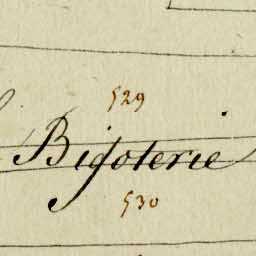 529
Bigoterie
530